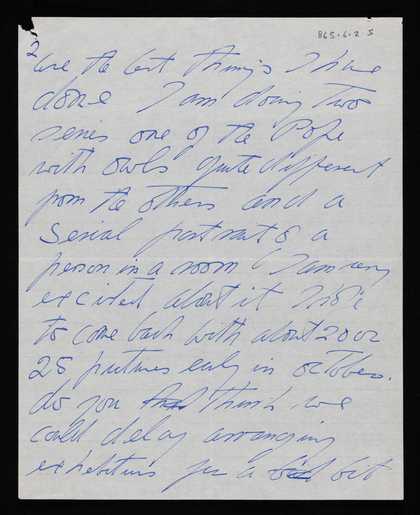 865.6.2 5
2
are the best things I have
done I am doing two
series one of the Pope
with owls quite different
from the others and a
serial portrait of a
person in a room I am very
excited about it I hope
to come back with about 20 or
25 pictures early in October.
do you think we
could delay arranging
exhibitions for a bit